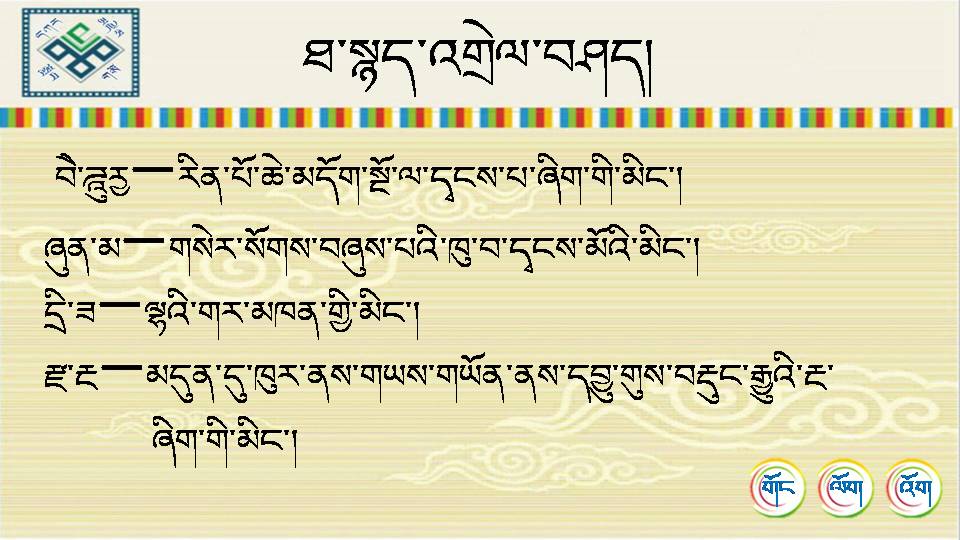 ཐ་སྙད་འགྲེལ་བཤད།
བཻ་ཌཱུརྱ—རིན་པོ་ཆེ་མདོག་སྔོ་ལ་དྭངས་པ་ཞིག་གི་མིང་།
ཞུན་མ—གསེར་སོགས་བཞུས་པའི་ཁུ་བ་དྭངས་མོའི་མིང་།
དྲི་ཟ—ལྷའི་གར་མཁན་གྱི་མིང་།
རྫ་རྔ—མདུན་དུ་ཁུར་ནས་གཡས་གཡོན་ནས་དབྱུ་གུས་བརྡུང་རྒྱུའི་རྔ་
ཞིག་གི་མིང་།
གོང
ལོག
འོག